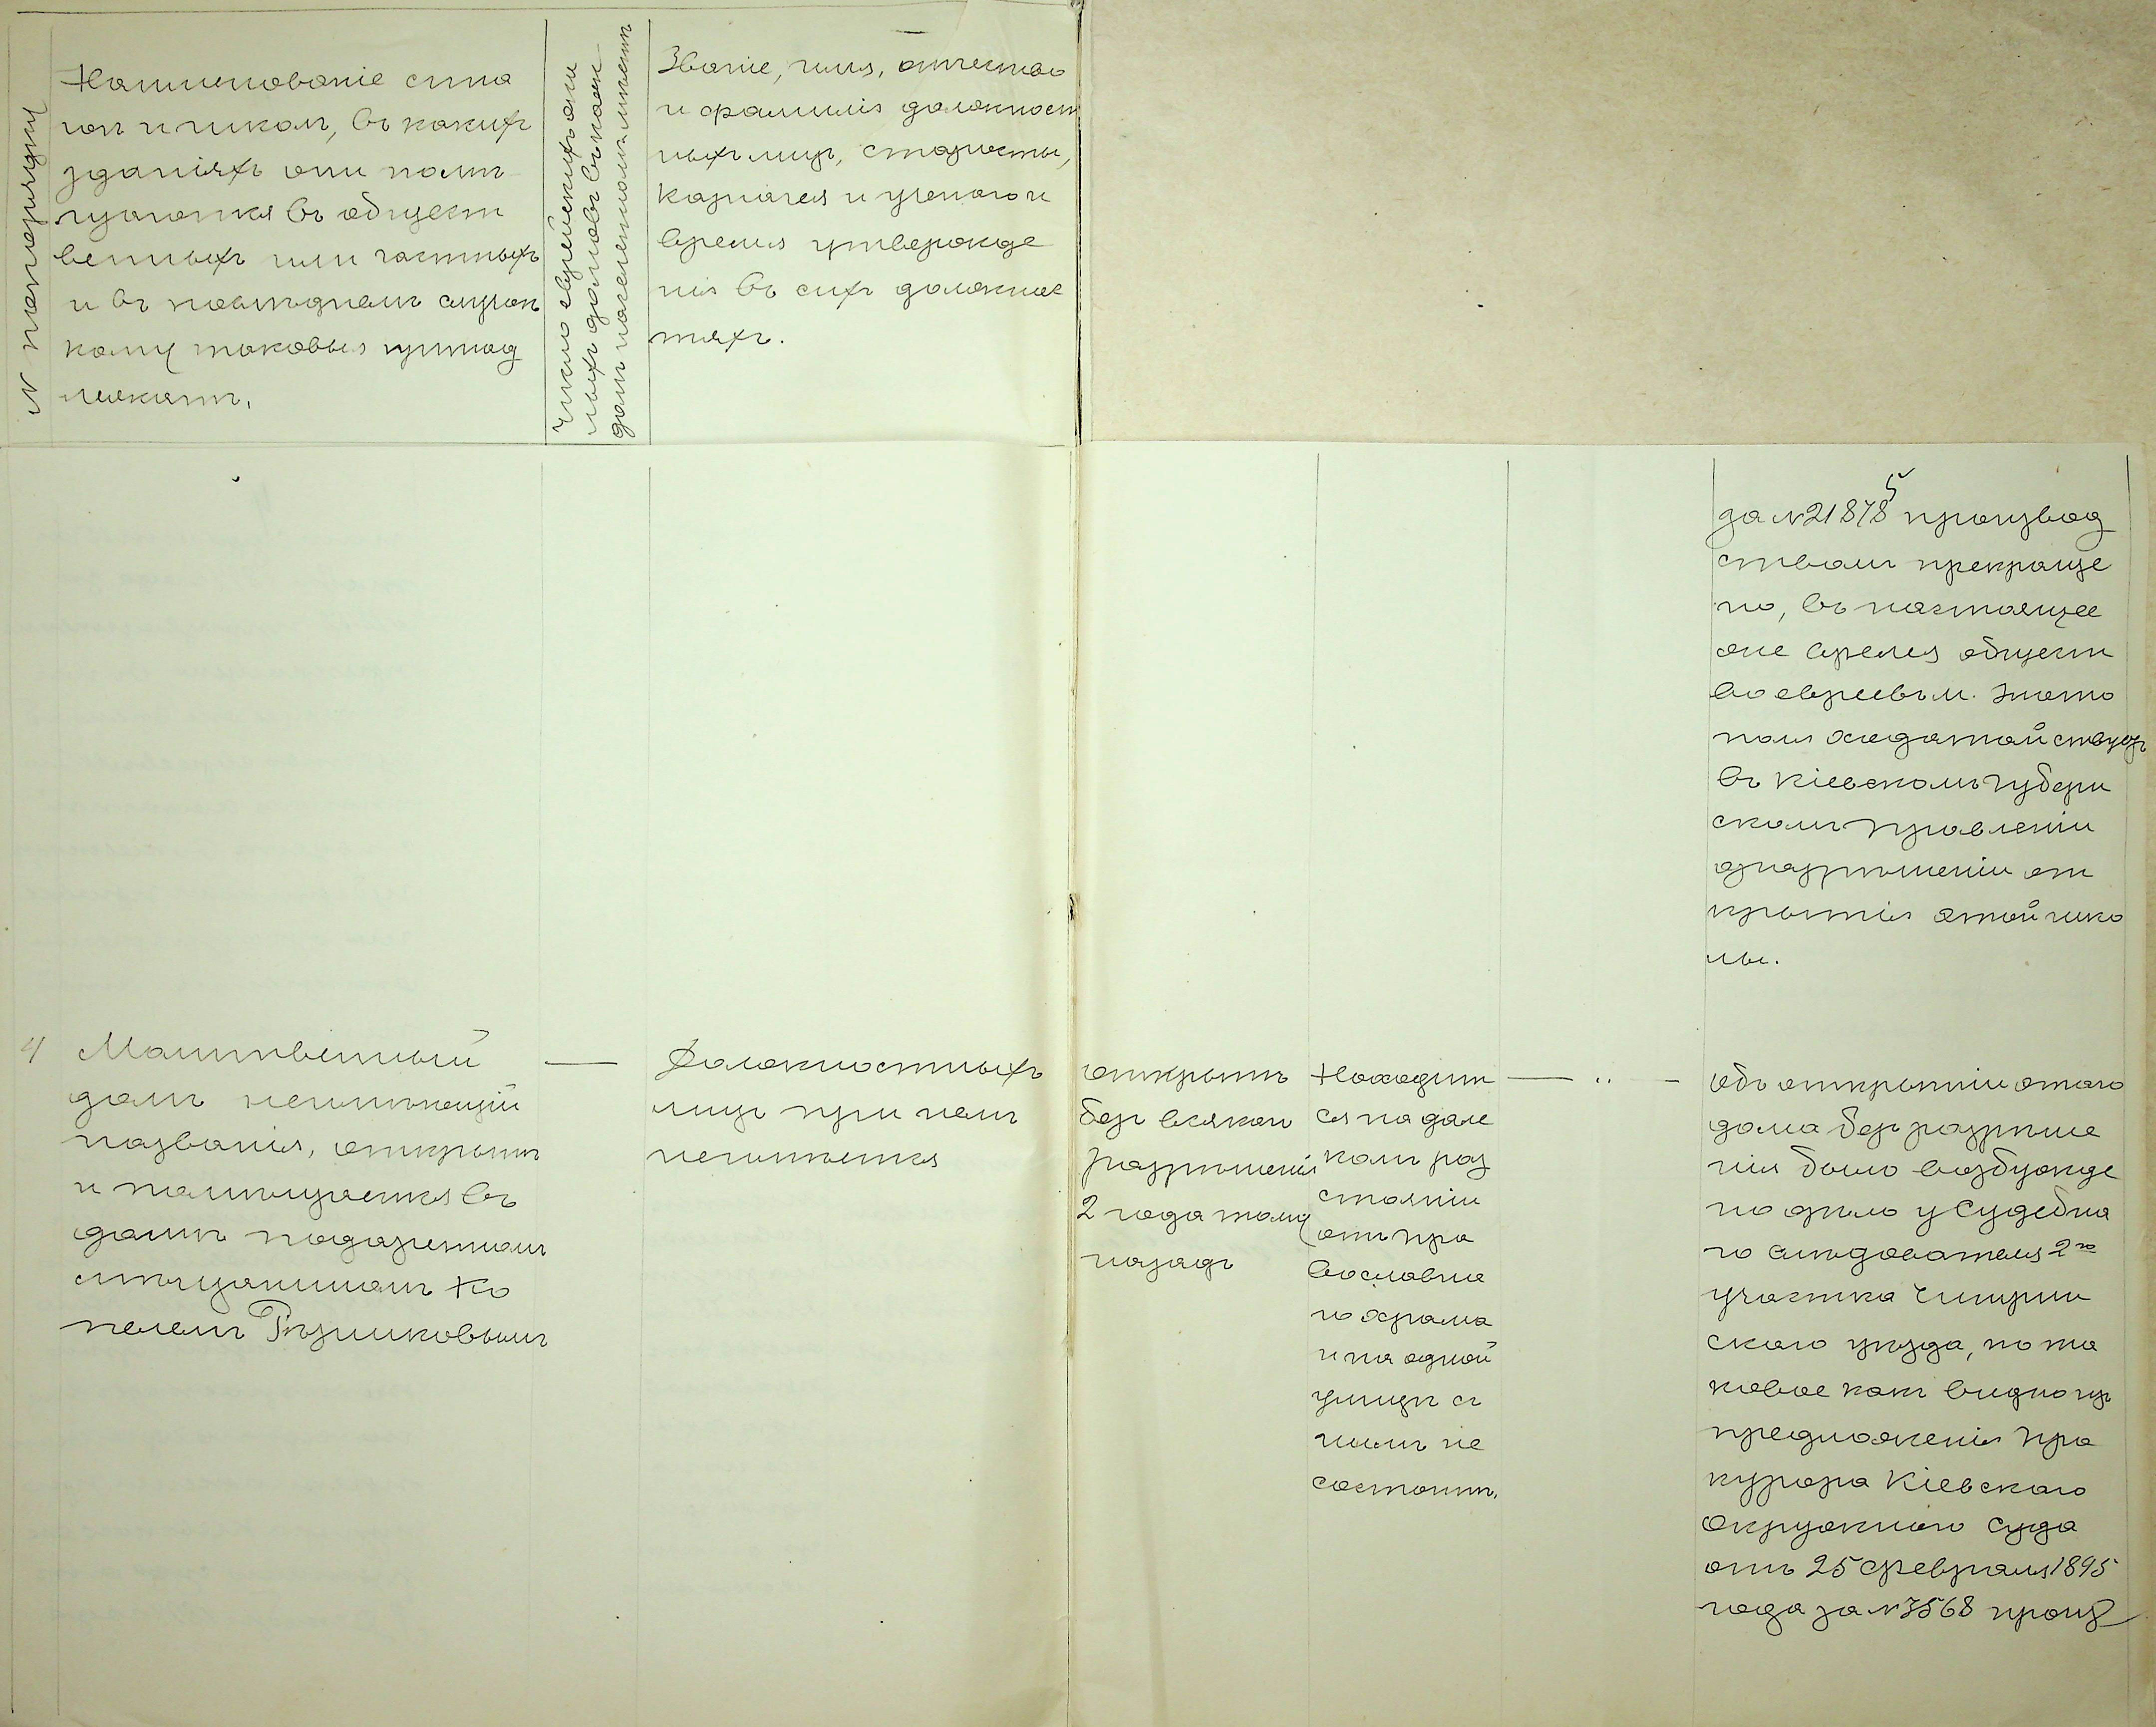 № по порядку
Наименованіе сина
гог и школ, въ каких
зданіяхъ они поме
щаются въ общест
венныхъ или частныхъ
и въ последнемъ случае
кому таковыя принад
лежатъ.
Число еврейскихъ
ныхъ домовъ въ каж
домъ населенномъ месте
Званіе, имя, отчество
и фамилія должност
ныхъ лицъ, старосты,
казначея и ученого и
время утвержде
нія въ сихъ должнос
тяхъ.
5
за № 21878 производ
ствомъ прекраще
но, въ настоящее
же время общест
во евреевъ м. Злато
поля ходатайствуетъ
въ Кіевскомъ Губерн
скомъ Правленіи
о разрѣшеніи от
крытія этой шко
лы.
4
Молитвенный
домъ неимѣющій
названія, открытъ
и помѣщается въ
домѣ подаренномъ
мѣщаниномъ Ко
пелемъ Рѣзниковымъ
—
Должностныхъ
лицъ при немъ
неимѣется
открытъ
безъ всякаго
разрѣшенія
2 года тому
назадъ
Находит
ся на дале
комъ раз
стояніи
отъ пра
вославна
го храма
и на одной
улицѣ съ
нимъ не
состоитъ.
— „ —
Объ открытіи этаго
дома безъ разрѣше
нія было возбужде
но дѣло у Судебна
го Слѣдователя 2го
участка Чигирин
скаго уѣзда, но та
ковое какъ видно изъ
предложенія Про
курора Кіевскаго
Окружнаго Суда
отъ 25 Февраля 1895
года за № 3568 произ